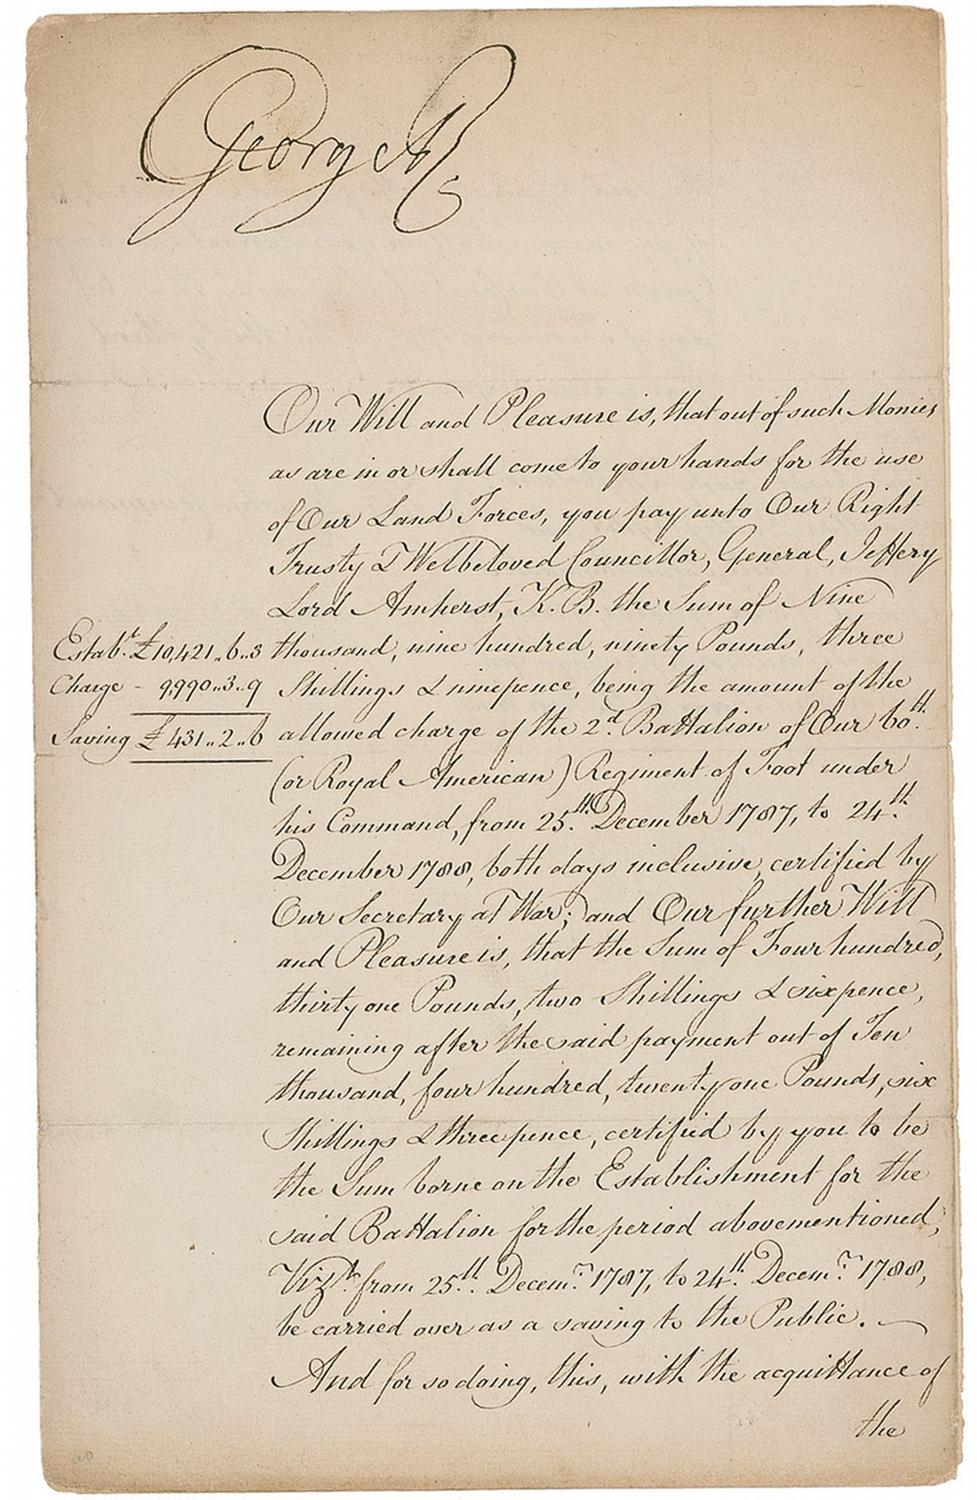 George R
Our Will and Pleasure is, that out of such Monies
as are in or shall come to your hands for the use
of Our Land Forces, you pay unto Our Right
Trusty & Welbeloved Councillor, General, Jeffery
Lord Amherst, K. B. the Sum of Nine
thousand, nine hundred, ninety Pounds, three
Shillings & ninepence, being the amount of the
allowed charge of the 2d. Battalion of Our 60th.
(or Royal American) Regiment of Foot under
his Command, from 25th. December 1787, to 24th.
December 1788, both days inclusive, certified by
Our Secretary at War; and Our further Will
and Pleasure is, that the Sum of Four hundred,
thirty one Pounds, two Shillings & sixpence,
remaining after the said payment out of Ten
thousand, four hundred, twenty one Pounds, six
Shillings & three pence, certified by you to be
the Sum borne on the Establishment for the
said Battalion for the period abovementioned;
Vizt. from 25th. Decemr. 1787, to 24th. Decemr. 1788,
be carried over as a saving to the Public.
And for so doing, this, with the acquittance of
the
Estabt. £10,421..6..3
Charge - 9,990..3..9
Saving £ 431..2..6